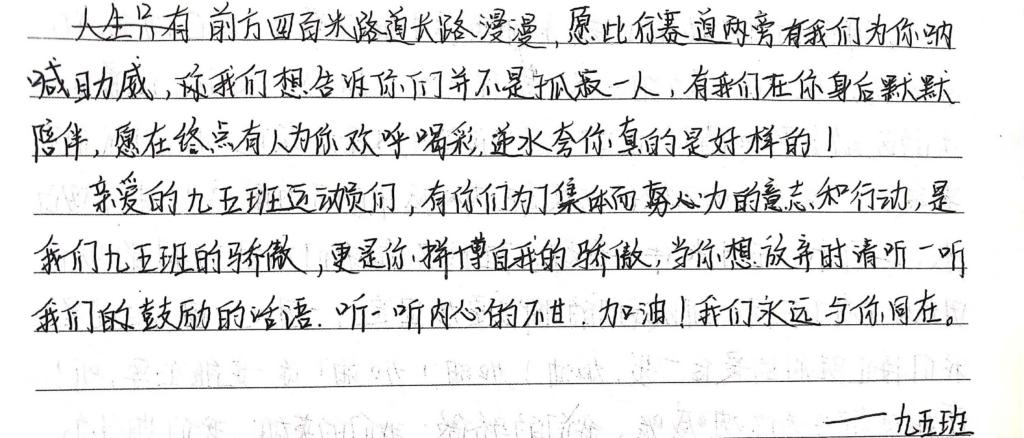 人生只有前方四百米路道长路漫漫，愿此行赛道两旁有我们为你呐
喊助威，你我们想告诉你们并不是孤寂一人，有我们在你身后默默
陪伴，愿在终点有人为你欢呼喝彩，递水夸你真的是好样的！
亲爱的九五班运动员们，有你们为了集体而努心力的意志和行动，是
我们九五班的骄傲，更是你拼博自我的骄傲，当你想放弃时请听一听
我们的鼓励的话语．听一听内心的不甘．加油！我们永远与你同在。
——九五班